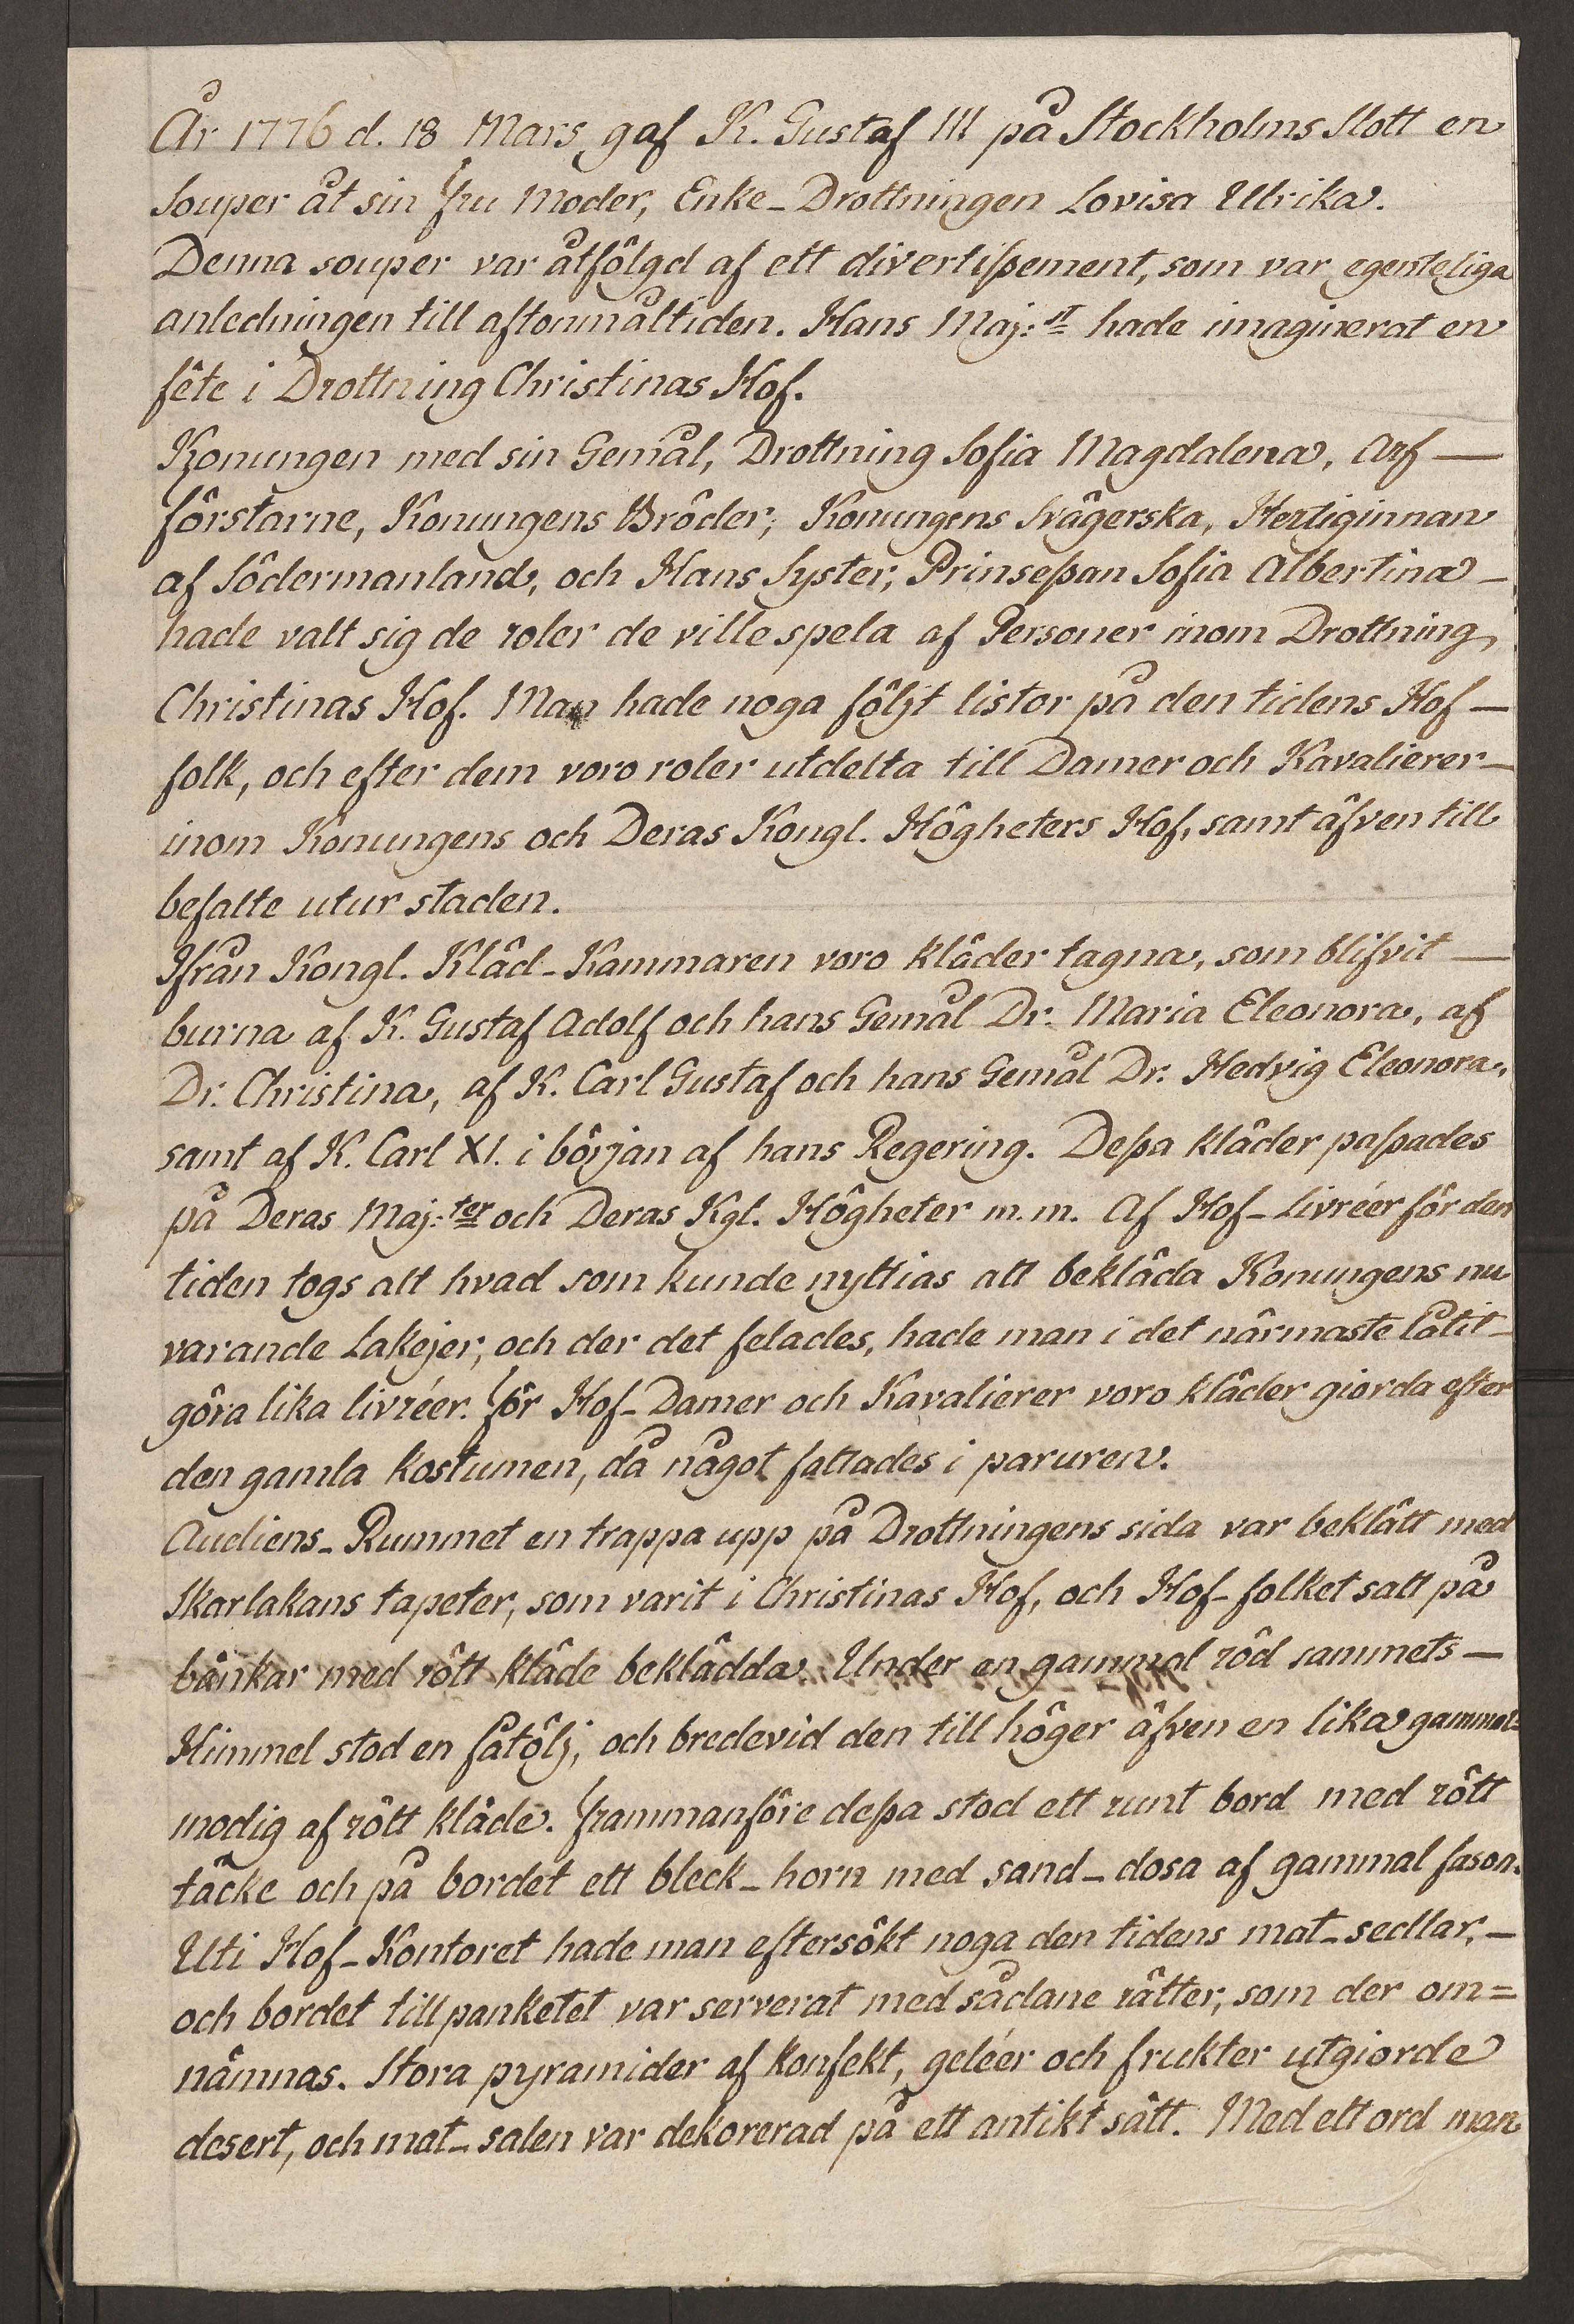 År 1776 d. 18 Mars gaf K. Gustaf III på Stockholms Slott en
Souper åt sin Fru Moder, Enke-Drottningen Lovisa Ulrika.
Denna souper var åtfölgd af ett divertißement, som var egenteliga
anledningen till aftonmåltiden. Hans Maj:st hade imaginerat en
fête i Drottning Christinas Hof.
Konungen med sin Gemål, Drottning Sofia Magdalena, Arf —
förstarne, Konungens Bröder; Konungens Svägerska, Hertiginnan
af Södermanland, och Hans Syster, Prinseßan Sofia Albertina –
hade valt sig de roler de ville spela af Personer inom Drottning
Christinas Hof. Man hade noga följt listor på den tidens Hof —
folk, och efter dem voro roler utdelta till Damer och Kavalierer –
inom Konungens och Deras Kongl. Högheters Hof, samt äfven till
befalte utur staden.
Ifrån Kongl. Kläd-Kammaren voro kläder tagna, som blifvit —
burna af K. Gustaf Adolf och hans Gemål Dr. Maria Eleonora, af
Dr. Christina, af K. Carl Gustaf och hans Gemål Dr. Hedvig Eleonora,
samt af K. Carl XI. i början af hans Regering. Deßa kläder paßades
på Deras Maj:ter och Deras Kgl. Högheter m.m. Af Hof-Livréer för den
tiden togs alt hvad som kunde nyttias att bekläda Konungens nu
varande Lakejer; och der det felades, hade man i det närmaste låtit –
göra lika livréer. För Hof-Damer och Kavalierer voro kläder giorda efter
den gamla kostumen, då något fattades i paruren.
Audiens-Rummet en trappa upp på Drottningens sida var beklätt med
Skarlakans tapeter, som varit i Christinas Hof, och Hof-folket satt på
bänkar med rött kläde beklädda. Under en gammal röd sammets —
Himmel stod en fåtölj, och bredevid den till höger äfven en lika gammal=
modig af rött kläde. Frammanföre deßa stod ett runt bord med rött
täcke och på bordet ett bleck-horn med sand-dosa af gammal fason.
Uti Hof-Kontoret hade man eftersökt noga den tidens mat-sedlar, –
och bordet till panketet var serverat med sådane rätter, som der om=
nämnas. Stora pyramider af konfekt, geléer och frukter utgiorde
desert, och mat-salen var dekorerad på ett antikt sätt. Med ett ord man